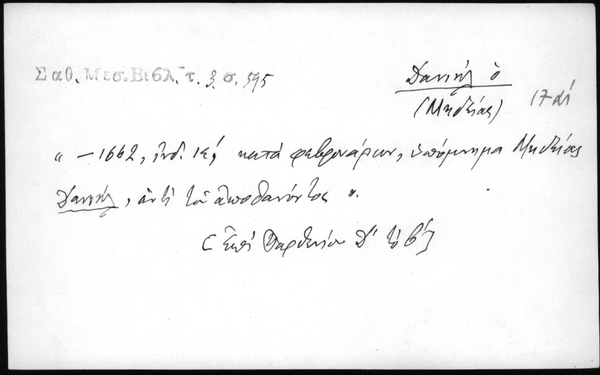 Σαθ. Μεσ. Βιβλ. τ. 3 σ. 595
Δανιήλ ὁ
(Μηδείας) 17 αἰ
" – 1662, ἰνδ. ιε', κατά φεβρουάριον, ὑπόμνημα Μηδείας
Δανιήλ, ἀντί τοῦ ἀποθανόντος ".
(Ἐπί Παρθενίου Δ' τό β')